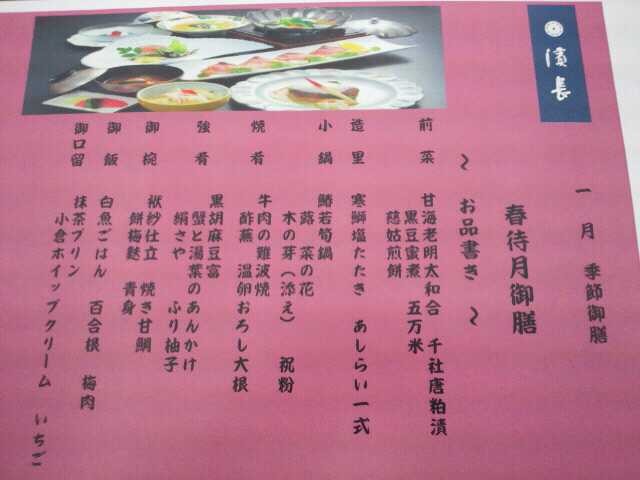 濱長
一月 季節御膳
春待月御膳
～ お品書き ～
前菜 甘海老明太和合 千社唐粕漬
黒豆蜜煮 五万米
慈姑煎餅
造里 寒鰤塩たたき あしらい一式
小鍋 鰆若筍鍋
蕗 菜の花
木の芽(添え) 祝粉
焼肴 牛肉の難波焼
酢蕪 温卵おろし大根
強肴 黒胡麻豆富
蟹と湯葉のあんかけ
絹さや ふり柚子
御椀 袱紗仕立 焼き甘鯛
餅梅麩 青身
御飯 白魚ごはん 百合根 梅肉
御口留 抹茶プリン
小倉ホイップクリーム いちご